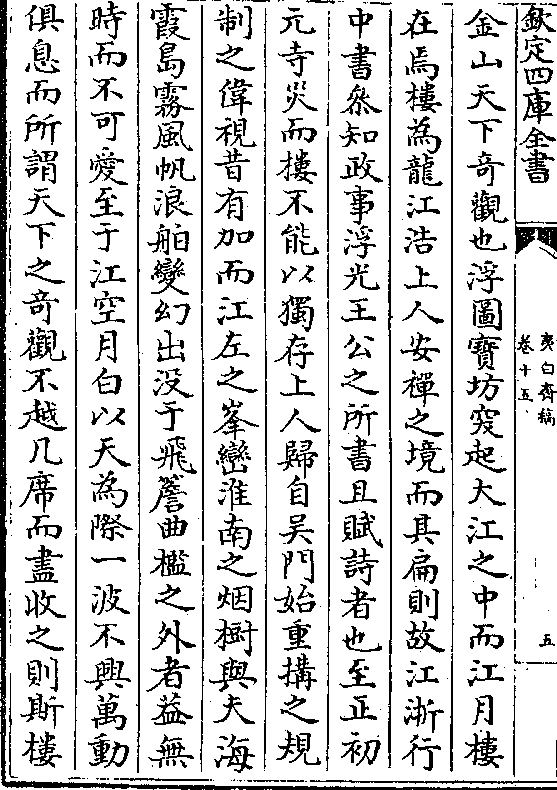 欽定四庫全書
夷白齋稿
卷十五
五
金山天下竒觀也浮圖寳坊突起大江之中而江月樓
在焉樓為龍江浩上人安禪之境而其扁則故江浙行
中書叅知政事浮光王公之所書且賦詩者也至正初
元寺災而樓不能以獨存上人歸自吴門始重搆之規
制之偉視昔有加而江左之峯巒淮南之烟樹與夫海
霞島霧風帆浪舶變幻出没于飛簷曲檻之外者益無
時而不可愛至于江空月白以天為際一波不興萬動
俱息而所謂天下之竒觀不越几席而盡收之則斯樓